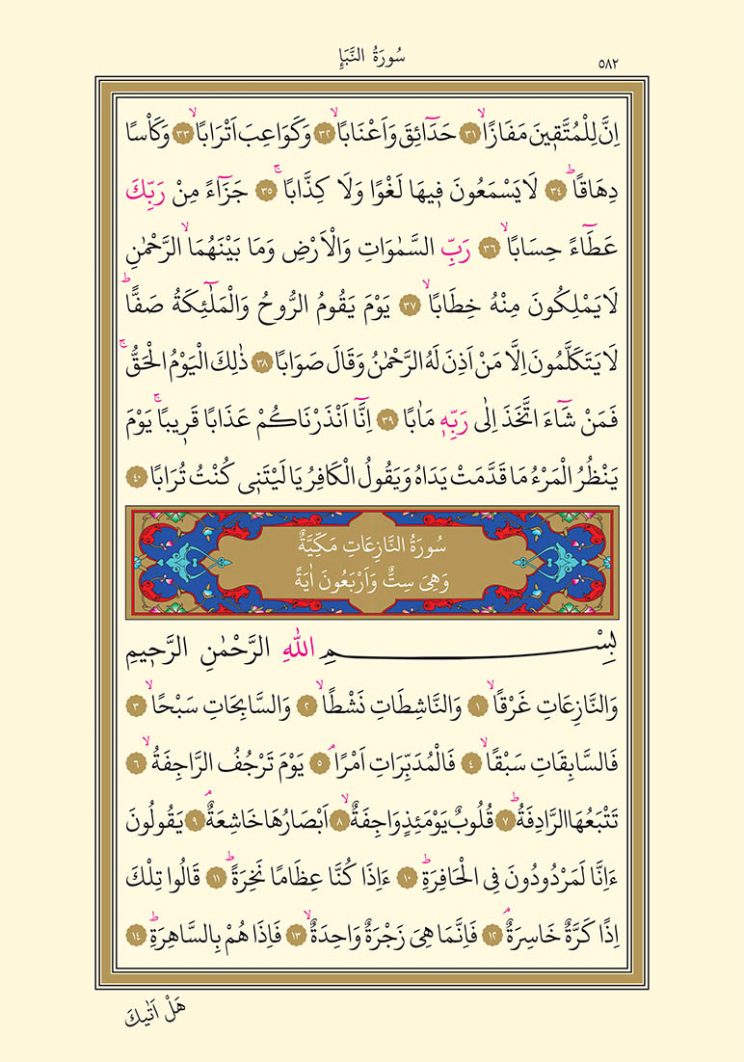 سُورَةُ النَّبَأِ ٥٨٢
اِنَّ لِلْمُتَّقٖينَ مَفَازًاۙ ﴿٣١﴾ حَدَٓائِقَ وَاَعْنَابًاۙ ﴿٣٢﴾ وَكَوَاعِبَ اَتْرَابًاۙ ﴿٣٣﴾ وَكَأْسًا
دِهَاقًاۜ ﴿٣٤﴾ لَا يَسْمَعُونَ فٖيهَا لَغْوًا وَلَا كِذَّابًاۚ ﴿٣٥﴾ جَزَٓاءً مِنْ رَبِّكَ
عَطَٓاءً حِسَابًاۙ ﴿٣٦﴾ رَبِّ السَّمٰوَاتِ وَالْاَرْضِ وَمَا بَيْنَهُمَاۙ الرَّحْمٰنِ
لَا يَمْلِكُونَ مِنْهُ خِطَابًاۙ ﴿٣٧﴾ يَوْمَ يَقُومُ الرُّوحُ وَالْمَلٰٓئِكَةُ صَفًّاۜ
لَا يَتَكَلَّمُونَ اِلَّا مَنْ اَذِنَ لَهُ الرَّحْمٰنُ وَقَالَ صَوَابًا ﴿٣٨﴾ ذٰلِكَ الْيَوْمُ الْحَقُّۚ
فَمَنْ شَٓاءَ اتَّخَذَ اِلٰى رَبِّهٖ مَاٰبًا ﴿٣٩﴾ اِنَّٓا اَنْذَرْنَاكُمْ عَذَابًا قَرٖيبًاۚ يَوْمَ
يَنْظُرُ الْمَرْءُ مَا قَدَّمَتْ يَدَاهُ وَيَقُولُ الْكَافِرُ يَا لَيْتَنٖى كُنْتُ تُرَابًا ﴿٤٠﴾
سُورَةُ النَّازِعَاتِ مَكِّيَّةٌ
وَهِىَ سِتٌّ وَاَرْبَعُونَ اٰيَةً
بِسْمِ اللّٰهِ الرَّحْمٰنِ الرَّحٖيمِ
وَالنَّازِعَاتِ غَرْقًاۙ ﴿١﴾ وَالنَّاشِطَاتِ نَشْطًاۙ ﴿٢﴾ وَالسَّابِحَاتِ سَبْحًاۙ ﴿٣﴾
فَالسَّابِقَاتِ سَبْقًاۙ ﴿٤﴾ فَالْمُدَبِّرَاتِ اَمْرًاۢ ﴿٥﴾ يَوْمَ تَرْجُفُ الرَّاجِفَةُۙ ﴿٦﴾
تَتْبَعُهَا الرَّادِفَةُۜ ﴿٧﴾ قُلُوبٌ يَوْمَئِذٍ وَاجِفَةٌۙ ﴿٨﴾ اَبْصَارُهَا خَاشِعَةٌۢ ﴿٩﴾ يَقُولُونَ
ءَاِنَّا لَمَرْدُودُونَ فِى الْحَافِرَةِۜ ﴿١٠﴾ ءَاِذَا كُنَّا عِظَامًا نَخِرَةًۜ ﴿١١﴾ قَالُوا تِلْكَ
اِذًا كَرَّةٌ خَاسِرَةٌۢ ﴿١٢﴾ فَاِنَّمَا هِىَ زَجْرَةٌ وَاحِدَةٌۙ ﴿١٣﴾ فَاِذَا هُمْ بِالسَّاهِرَةِۜ ﴿١٤﴾
هَلْ اَتٰيكَ